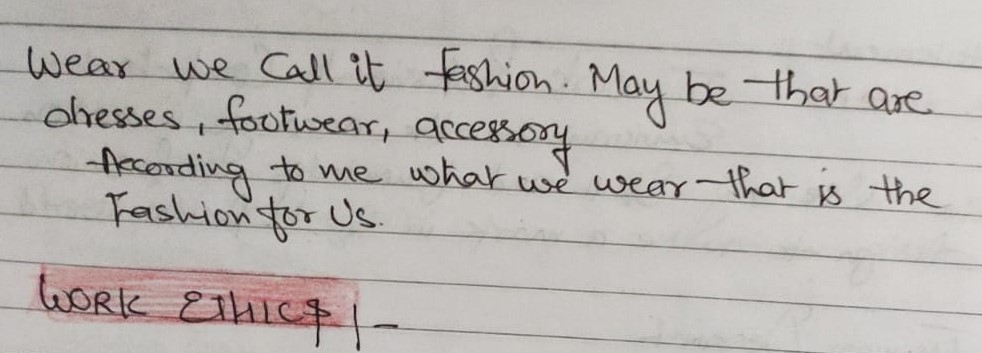 Wear we Call it fashion. May be that are
dresses, footwear, accessory
According to me what we wear that is the
Fashion for Us.
WORK EThICS |-